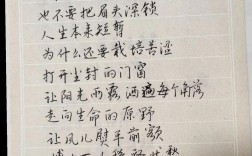 也不要把眉头深锁
人生本来短暂
为什么还要栽培苦涩
打开尘封的门窗
让阳光雨露洒遍每个角落
走向生命的原野
让风儿熨平前额